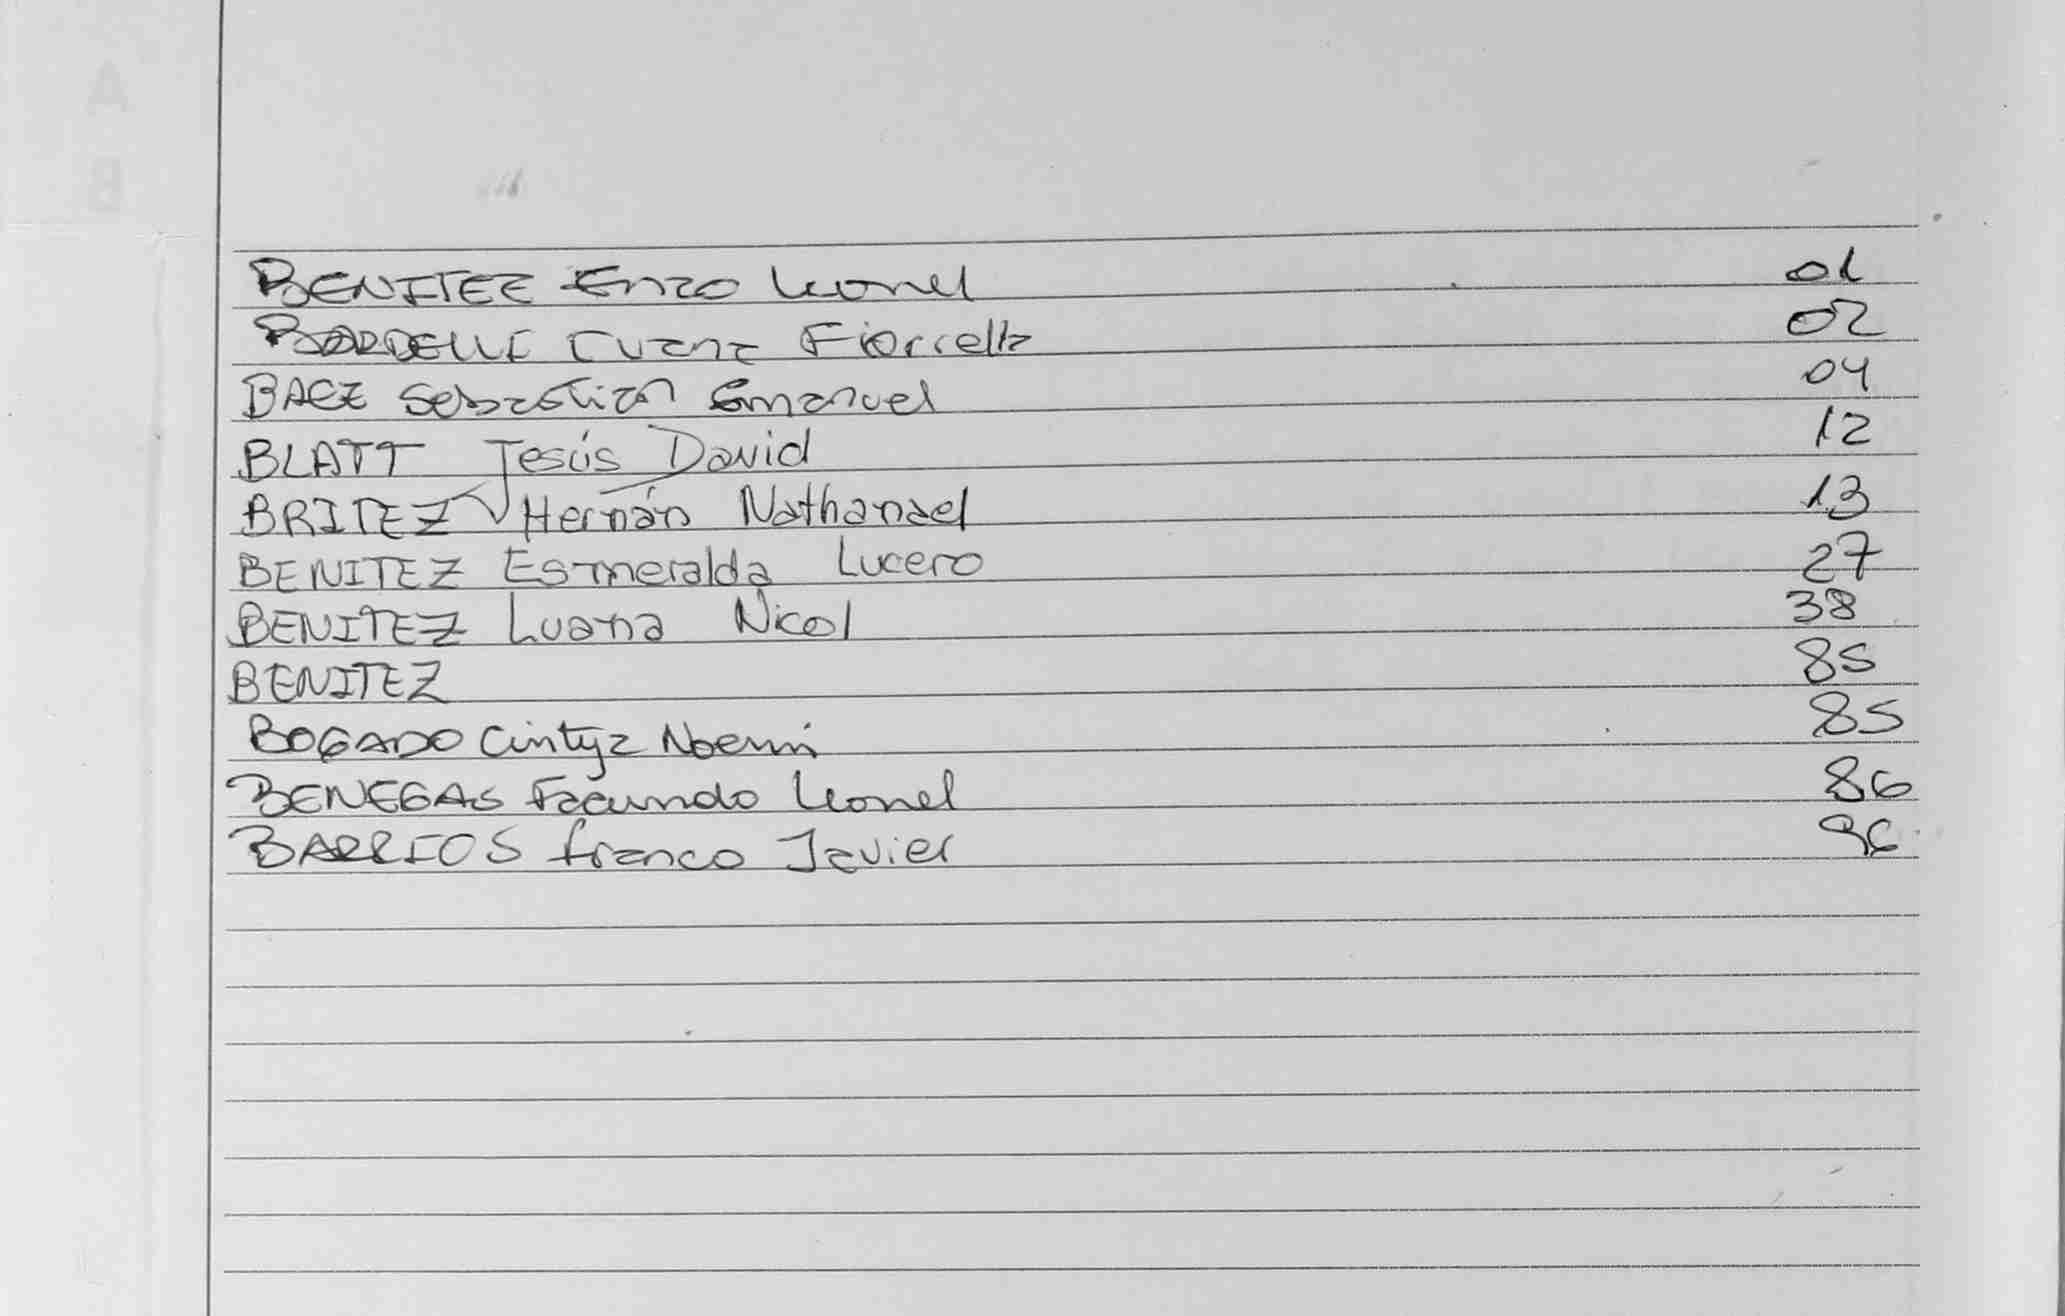 BENITEZ Enzo Leonel 01
BORDELLI Luana Fiorrella 02
BAEZ Sebastian Emanuel 04
BLATT Jesús David 12
BRITEZ Hernán Nathanael 13
BENITEZ Esmeralda Lucero 27
BENITEZ Luana Nicol 38
BENITEZ 85
BOGADO Cintya Noemi 85
BENEGAS Facundo Leonel 86
BARRIOS franco Javier 96